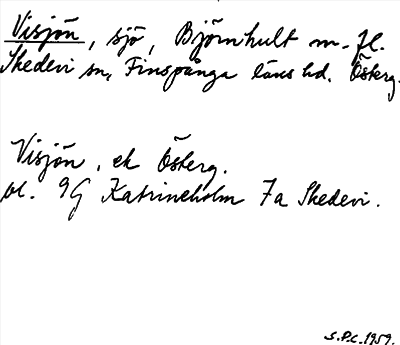 Visjön, sjö, Björnhult m. fl.
Skedevi sn, Finspånga läns hd. Österg.
Visjön, ek Österg.
bl. 9G Katrineholm 7a Skedevi.
S.P.C. 1959.